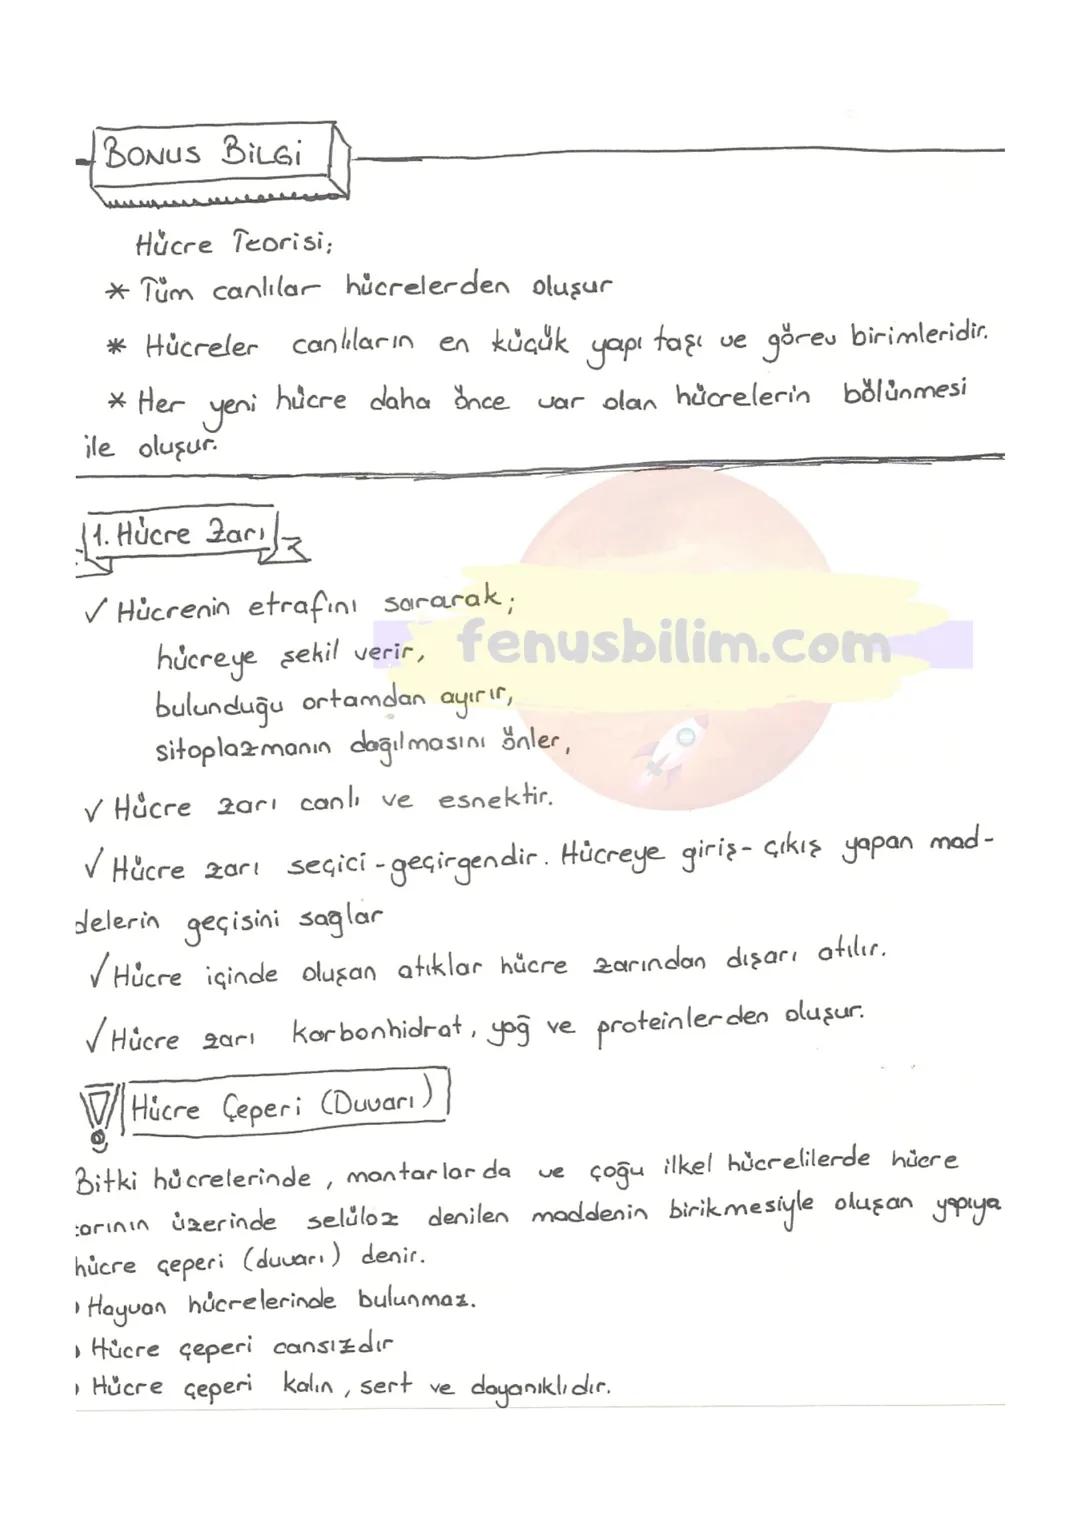 BONUS BİLGİ
Hücre Teorisi;
* Tüm canlılar hücrelerden oluşur
* Hücreler canlıların en küçük yapı taşı ve görev birimleridir.
* Her yeni hücre daha önce var olan hücrelerin bölünmesi
ile oluşur.
1. Hücre Zarı
✓ Hücrenin etrafını sararak;
hücreye şekil verir,
fenusbilim.com
bulunduğu ortamdan ayırır,
sitoplazmanın dağılmasını önler,
✓ Hücre zarı canlı ve esnektir.
✓ Hücre zarı seçici-geçirgendir. Hücreye giriş-çıkış yapan mad-
delerin geçisini sağlar
✓ Hücre içinde oluşan atıklar hücre zarından dışarı atılır.
✓ Hücre zarı karbonhidrat, yağ ve proteinlerden oluşur.
! Hücre Çeperi (Duvarı)
Bitki hücrelerinde, mantarlarda ve çoğu ilkel hücrelilerde hücre
zarının üzerinde selüloz denilen maddenin birikmesiyle oluşan yapıya
hücre çeperi (duvarı) denir.
Hayvan hücrelerinde bulunmaz.
Hücre çeperi cansızdır
Hücre çeperi kalın, sert ve dayanıklıdır.